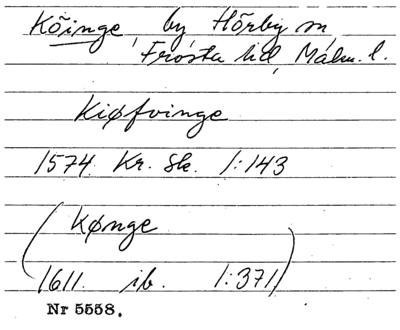 Köinge, by Hörby sn,
Frosta hd, Malm. l.
Kiøfvinge
1574 Kr. Sk. 1:143
(Kønge
1611. ib. 1:371)
Nr 5558.